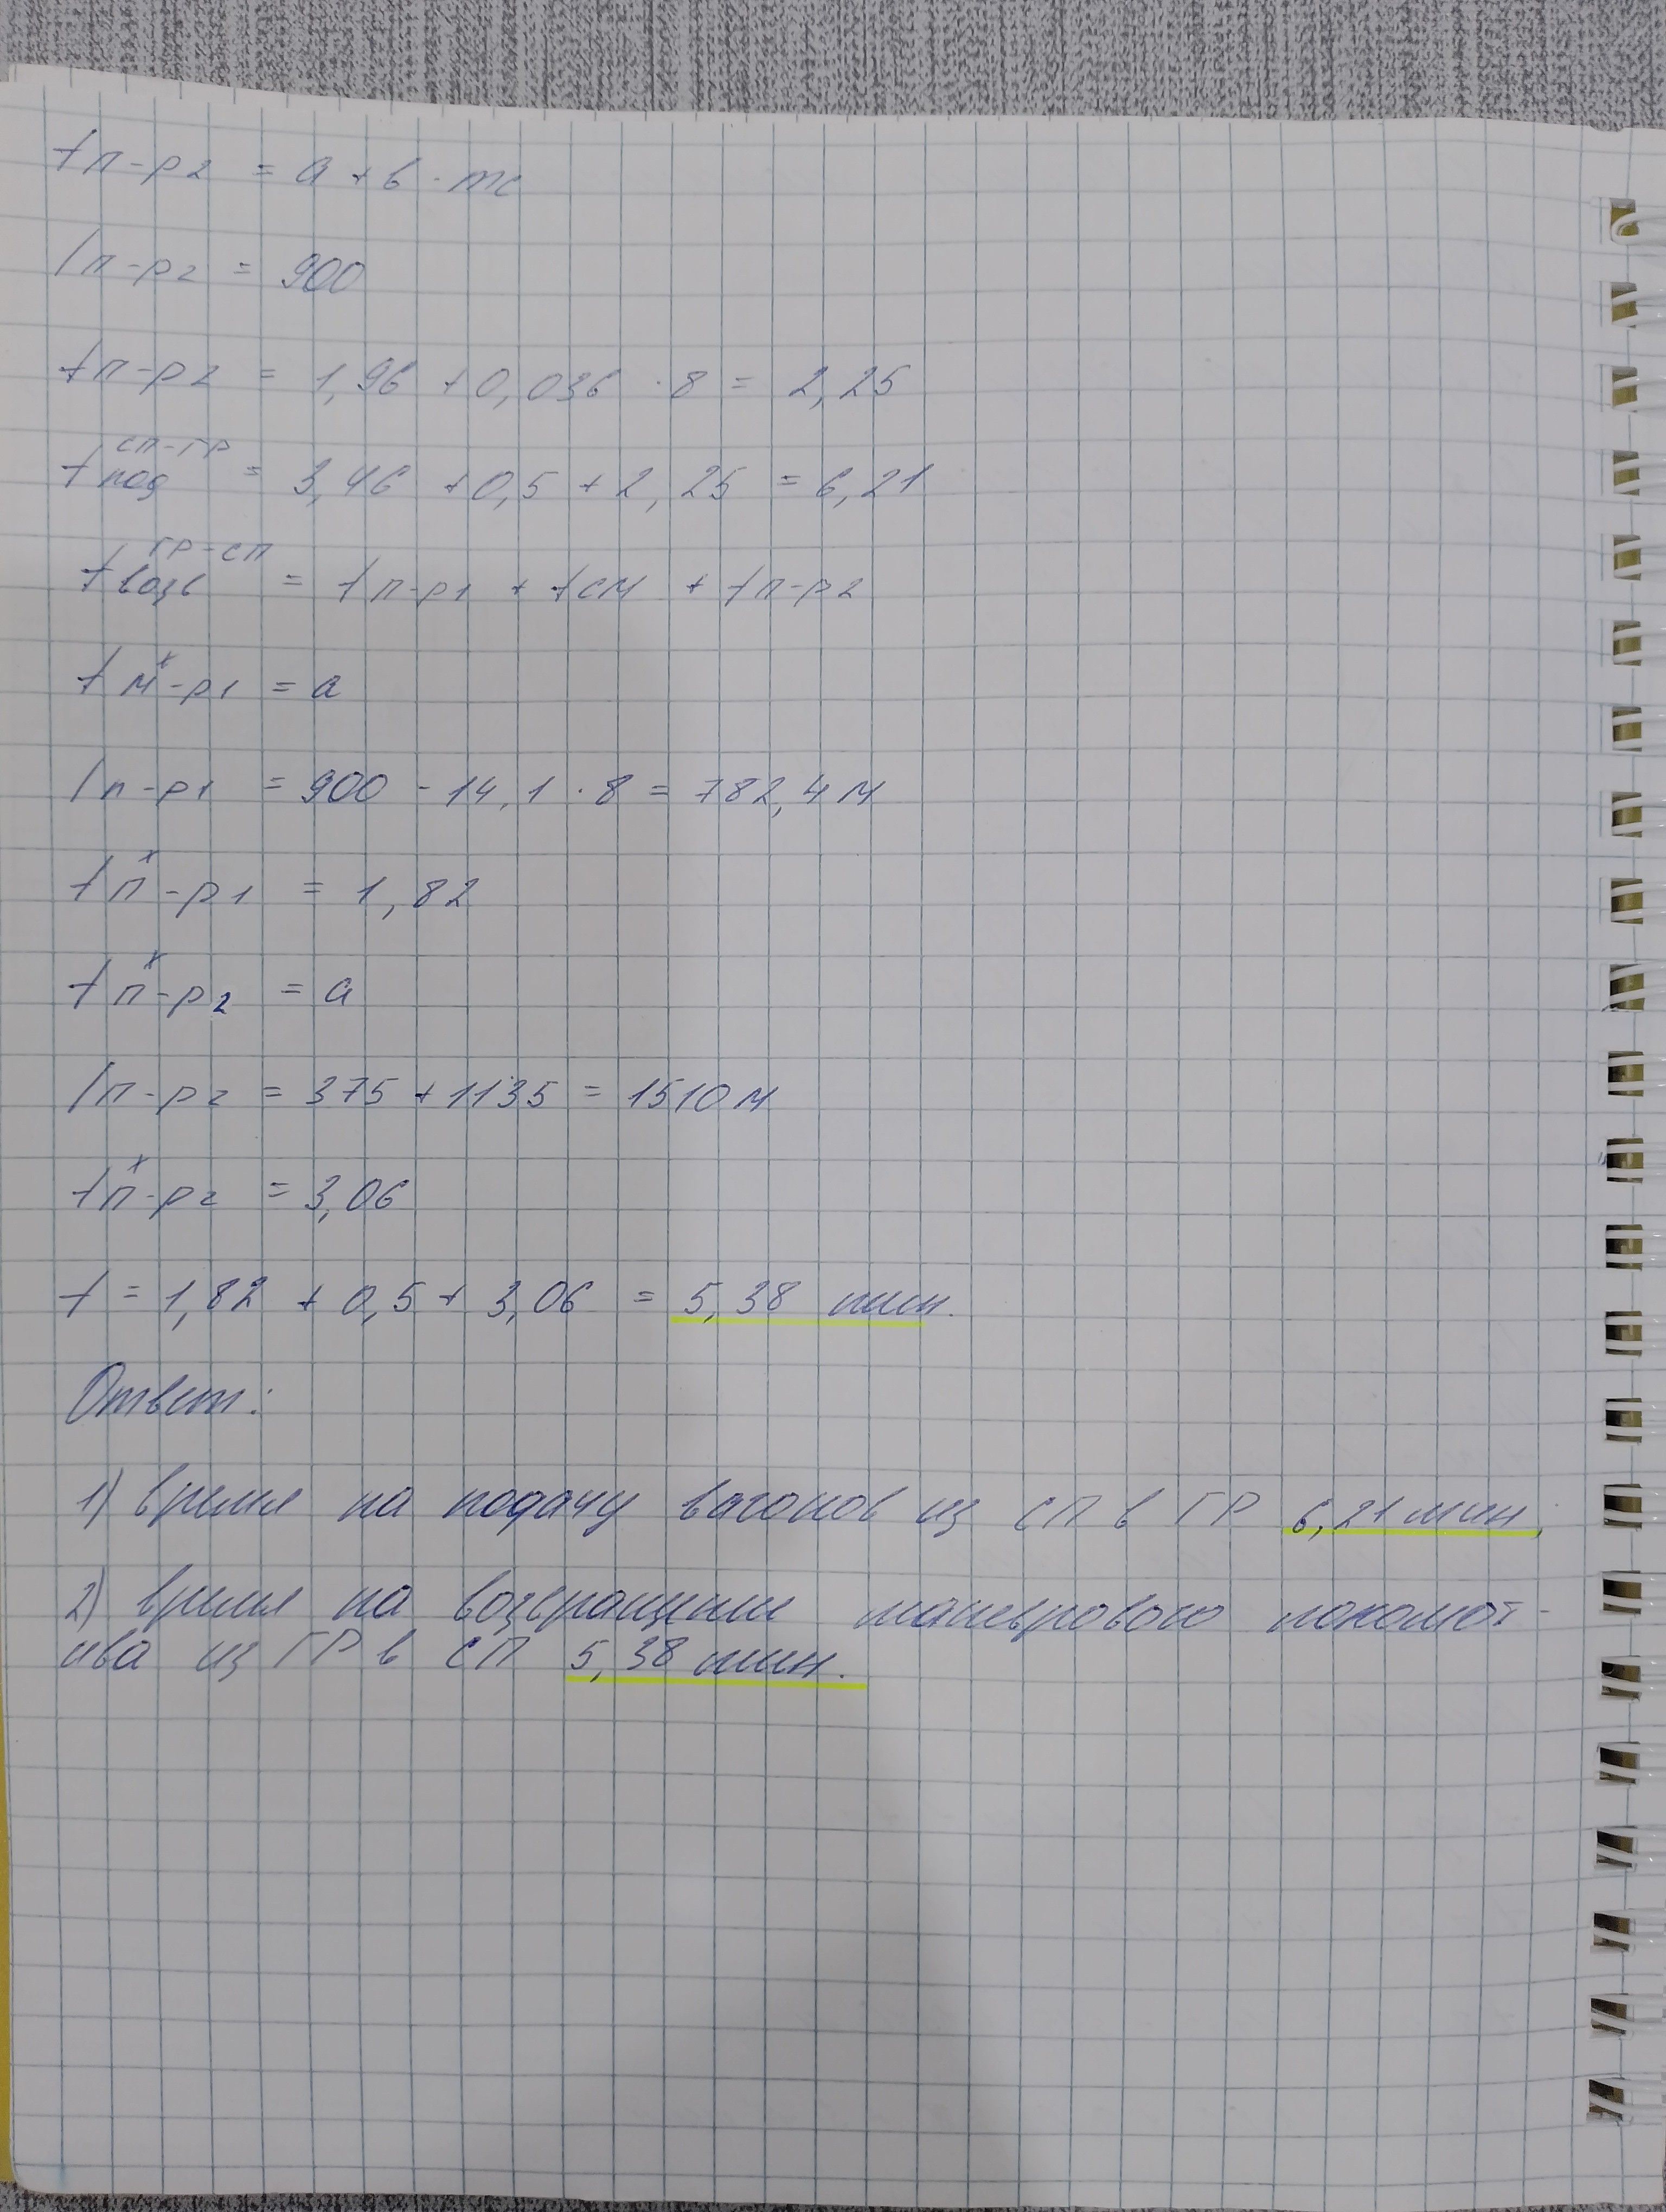 tп-р2 = a + в · mc
lп-р2 = 900
tп-р2 = 1,96 + 0,036 · 8 = 2,25
tпод СП-ГР = 3,46 + 0,5 + 2,25 = 6,21
tвозв ГР-СП = tп-р1 + tсм + tп-р2
tм-р1 х = a
lп-р1 = 900 - 14,1 · 8 = 782,4 м
tп-р1 х = 1,82
tп-р2 х = a
lп-р2 = 375 + 1135 = 1510 м
tп-р2 х = 3,06
t = 1,82 + 0,5 + 3,06 = 5,38 мин.
Ответ:
1) время на подачу вагонов из СП в ГР 6,21 мин,
2) время на возвращение маневрового локомот-
ива из ГР в СП 5,38 мин.